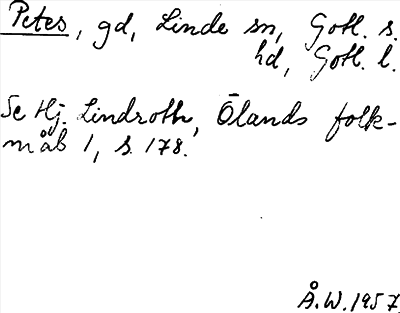 Petes, gd, Linde sn, Gotl. s.
hd, Gotl. l.
Se Hj. Lindroth, Ölands folk-
mål 1, s. 178.
Å.W. 1957.